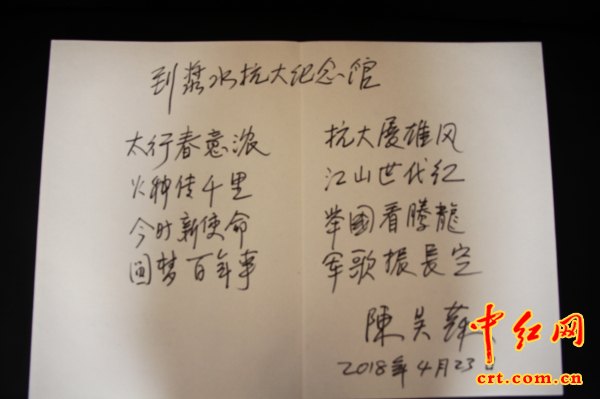 到浆水抗大纪念馆
太行春意浓 抗大展雄风
火种传千里 江山世代红
今时新使命 举國看腾龍
圆梦百年事 军歌振長空
陳昊蘇
2018年4月23日
中红网
crt.com.cn